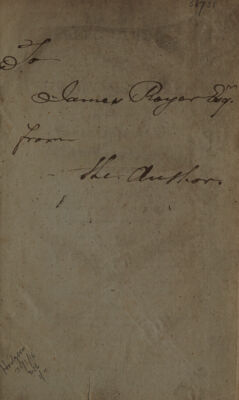 To
James Royer Esqr.
from
the Author